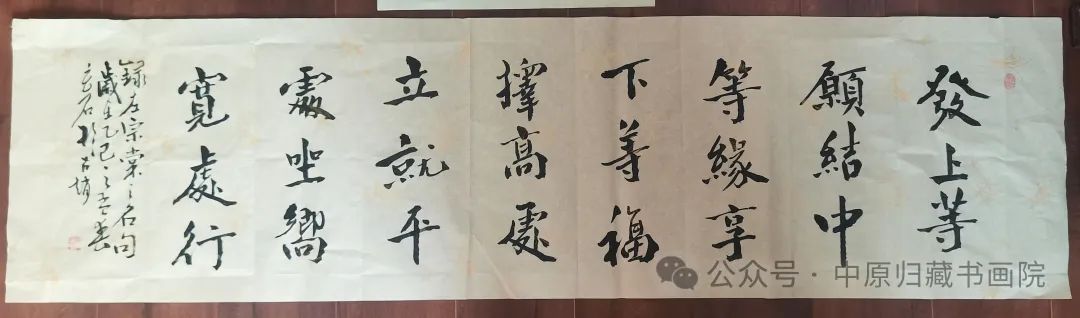 發上等
願結中
等緣享
下等福
擇高處
立就平
處坐嚮
寬處行
錄左宗棠之名句
歲在乙巳之春
於古
公众号·中原归藏书画院